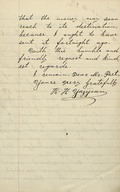 that the money may soon
reach to its destination,
because I ought to have
sent it fortnight ago.
With this humble and
friendly request and kind-
est regards
I remain Dear Mr.
Yours very gratefully